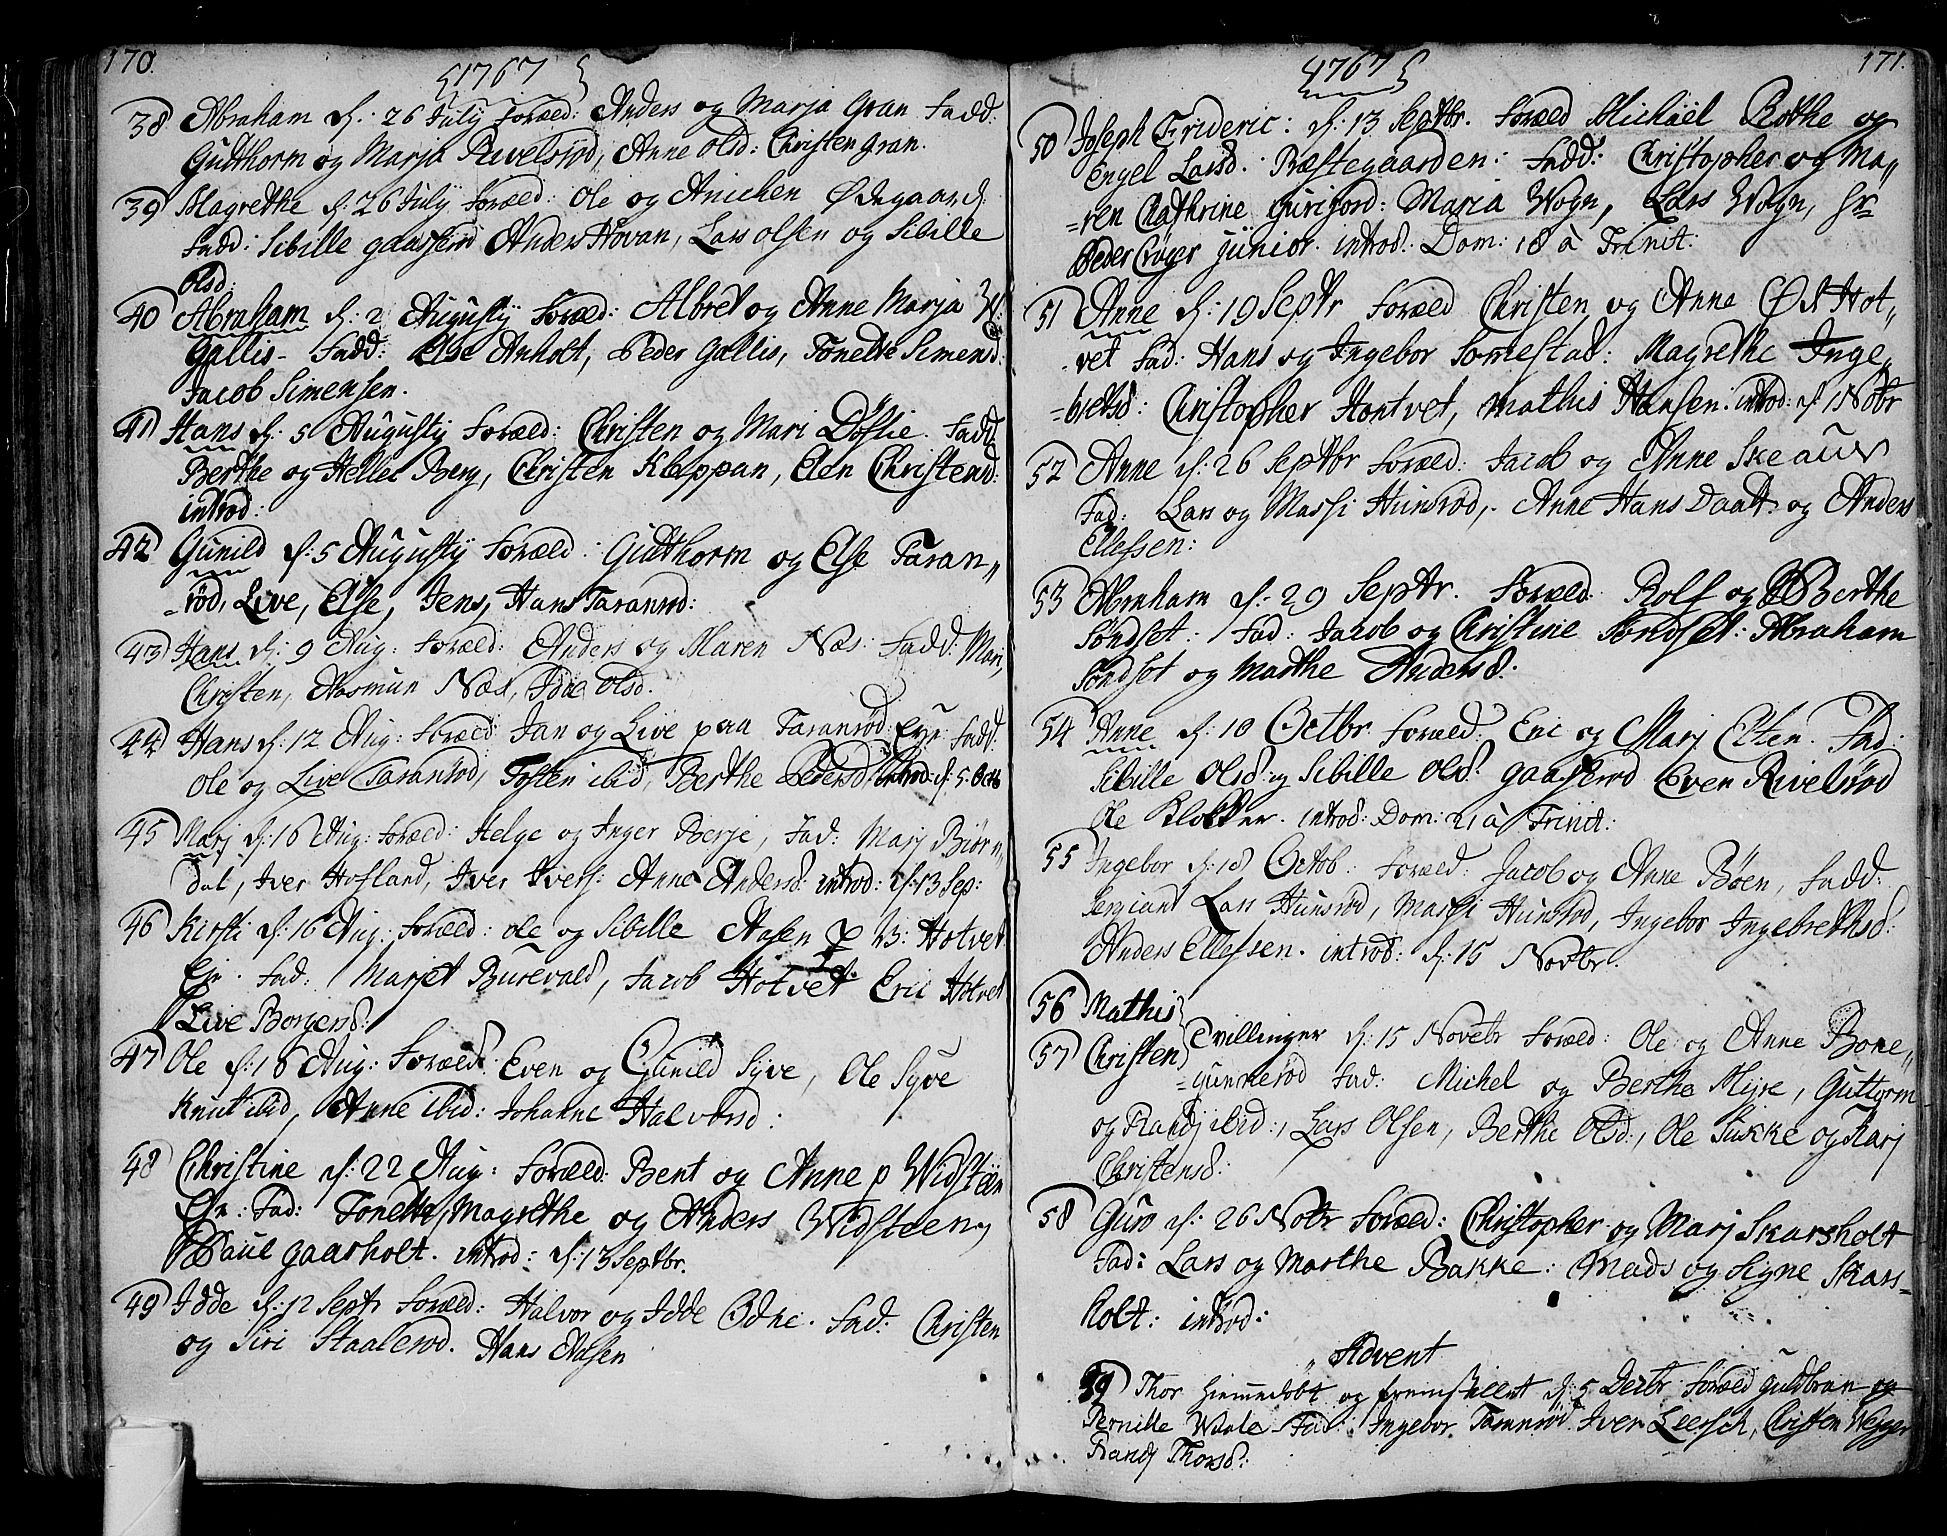 170.
1767
38 Abraham d: 26 July foræld: Anders og Marja Gran Fadd:
Gudthorm og Marja Rivelsrød, Anne Olsd: Christen Gran.
39 Magrethe d: 26 July foræld: Ole og Anichen Ødegaard
Fadd: Sibille gaasserød Anders Hovan, Lars Olsen og Sibille
Olsd:
40 Abraham d: 2 Augusty Foræld: Albret og Anne Marja
Gallis- Fadd: Else Anholt, Peder Gallis, Tonette Simensd:
Jacob Simensen.
41 Hans d: 5 Augusty Foræld: Christen og Mari Døslie. Fadd
Berthe og Helle Berg, Christen Kleppan, Elen Christensd:
introd:
42 Gunild d: 5 Augusty Foræld: Gudthorm og Else Taran„
-rød, Live, Else, Jens, Hans Taranrød:
43 Hans d: 9 Aug: foræld: Anders og Maren Næs: Fadd: Mari,
Christen, Aasmun Næs, Olsd.
44 Hans d: 12 Aug: foræld Jan og Live paa Taranrød Eje Fadd:
Ole og Live Taranrød, Tosten ibid, Berthe Pedersd, introd: d: 5. Octb
45 Marj d: 16 Aug: foræld: Helge og Inger Berje, Fad: Marj Biørn„
dal, Iver Hofland, Iver Ivers: Anne Andersd: introd: d: 13 Sep:
46 Kirsti d: 16 Aug: foræld: Ole og Sibille Aasen Hotvet
Eje. Fad: Marjet Burevald, Jacob Hotvet Eric Hotvet
Live Borgersd:
47 Ole d: 16 Aug: Foræld: Even og Gunild Syve, Ole Syve
Knut ibid, Anne ibid: Johanne Halvorsd:
48 Christine d: 22 Aug: Foræld: Bent og Anne p Widsteen
Eje: Fad: Tonette, Magrethe og Anders Widsteen,
Paul gaasholt. introd: d: 13 Septbr.
49 Idde d: 12 Septr Foræld: Halvor og Idde Odne. Fad: Christen
og Siri Staalerød. Hans Aasen
171.
1767
50 Joseph Frideric: d: 13 Septbr. Foræld Michael Rothe og
Engel Larsd: Præstegaarden: Fadd: Christopher og Ma„
-ren Cathrine Guriford: Maria Wogn, Lars Wogn, Hr
Peder Crøger junior. introd: Dom: 18 à Trinit:
51 Anne d: 19 Septr Foræld Christen og Anne Hot„
-vet Fad: Hans og Ingebor Sommestad: Magrethe Inge„
-bretsd: Christopher Hontvet, Mathis Hansen: introd: d: 1 Nobr
52 Anne d: 26 Septbr Foræld: Jacob og Anne Skeaur
Fad: Lars og Massi Hunsrød, Anne Hans Daatt. og Anders
Ellefsen:
53 Abraham d: 29 Septr. Foræld: Rolf og Berthe
Søndset: Fad: Jacob og Christine Søndset: Abraham
Søndset og Marthe Andersd:
54 Anne d: 10 Octbr Foræld: Eric og Marj Elten Fad:
Sibille Olsd og Sibille Olsd: gaasserød Even Rivelsrød
Ole Klokker. introd: Dom: 21 à Trinit:
55 Ingebor d: 18 Octob: Foræld: Jacob og Anne Bøen, Fadd:
Sergiant Lars Hunsrød, Massi Hunsrød, Ingebor Ingebrethsd:
Anders Ellefsen. introd: d: 15 Novbr.
56 Mathis
57 Christen Tvillinger d: 15 Novebr Foræld: Ole og Anne Bone„
-gunnerød Fad: Michel og Berthe Myre, Guttorm
og Randj ibid:, Lars Olsen, Berthe Olsd:, Ole Sukke og Karj
Christensd:
58 Guro d: 26 Nobr Foræld: Christopher og Marj Skarsholt
Fad: Lars og Marthe Bakke: Mads og Signe Skars-
holt: introd:
Advent
59 Thor hjemmedøbt og fremstillet d: 5 Decbr Foræld Guldbran og
Pernille Waale Fad: Ingebor Taranrød Iver Leersch, Christen Wegger
Randj Thorsd: